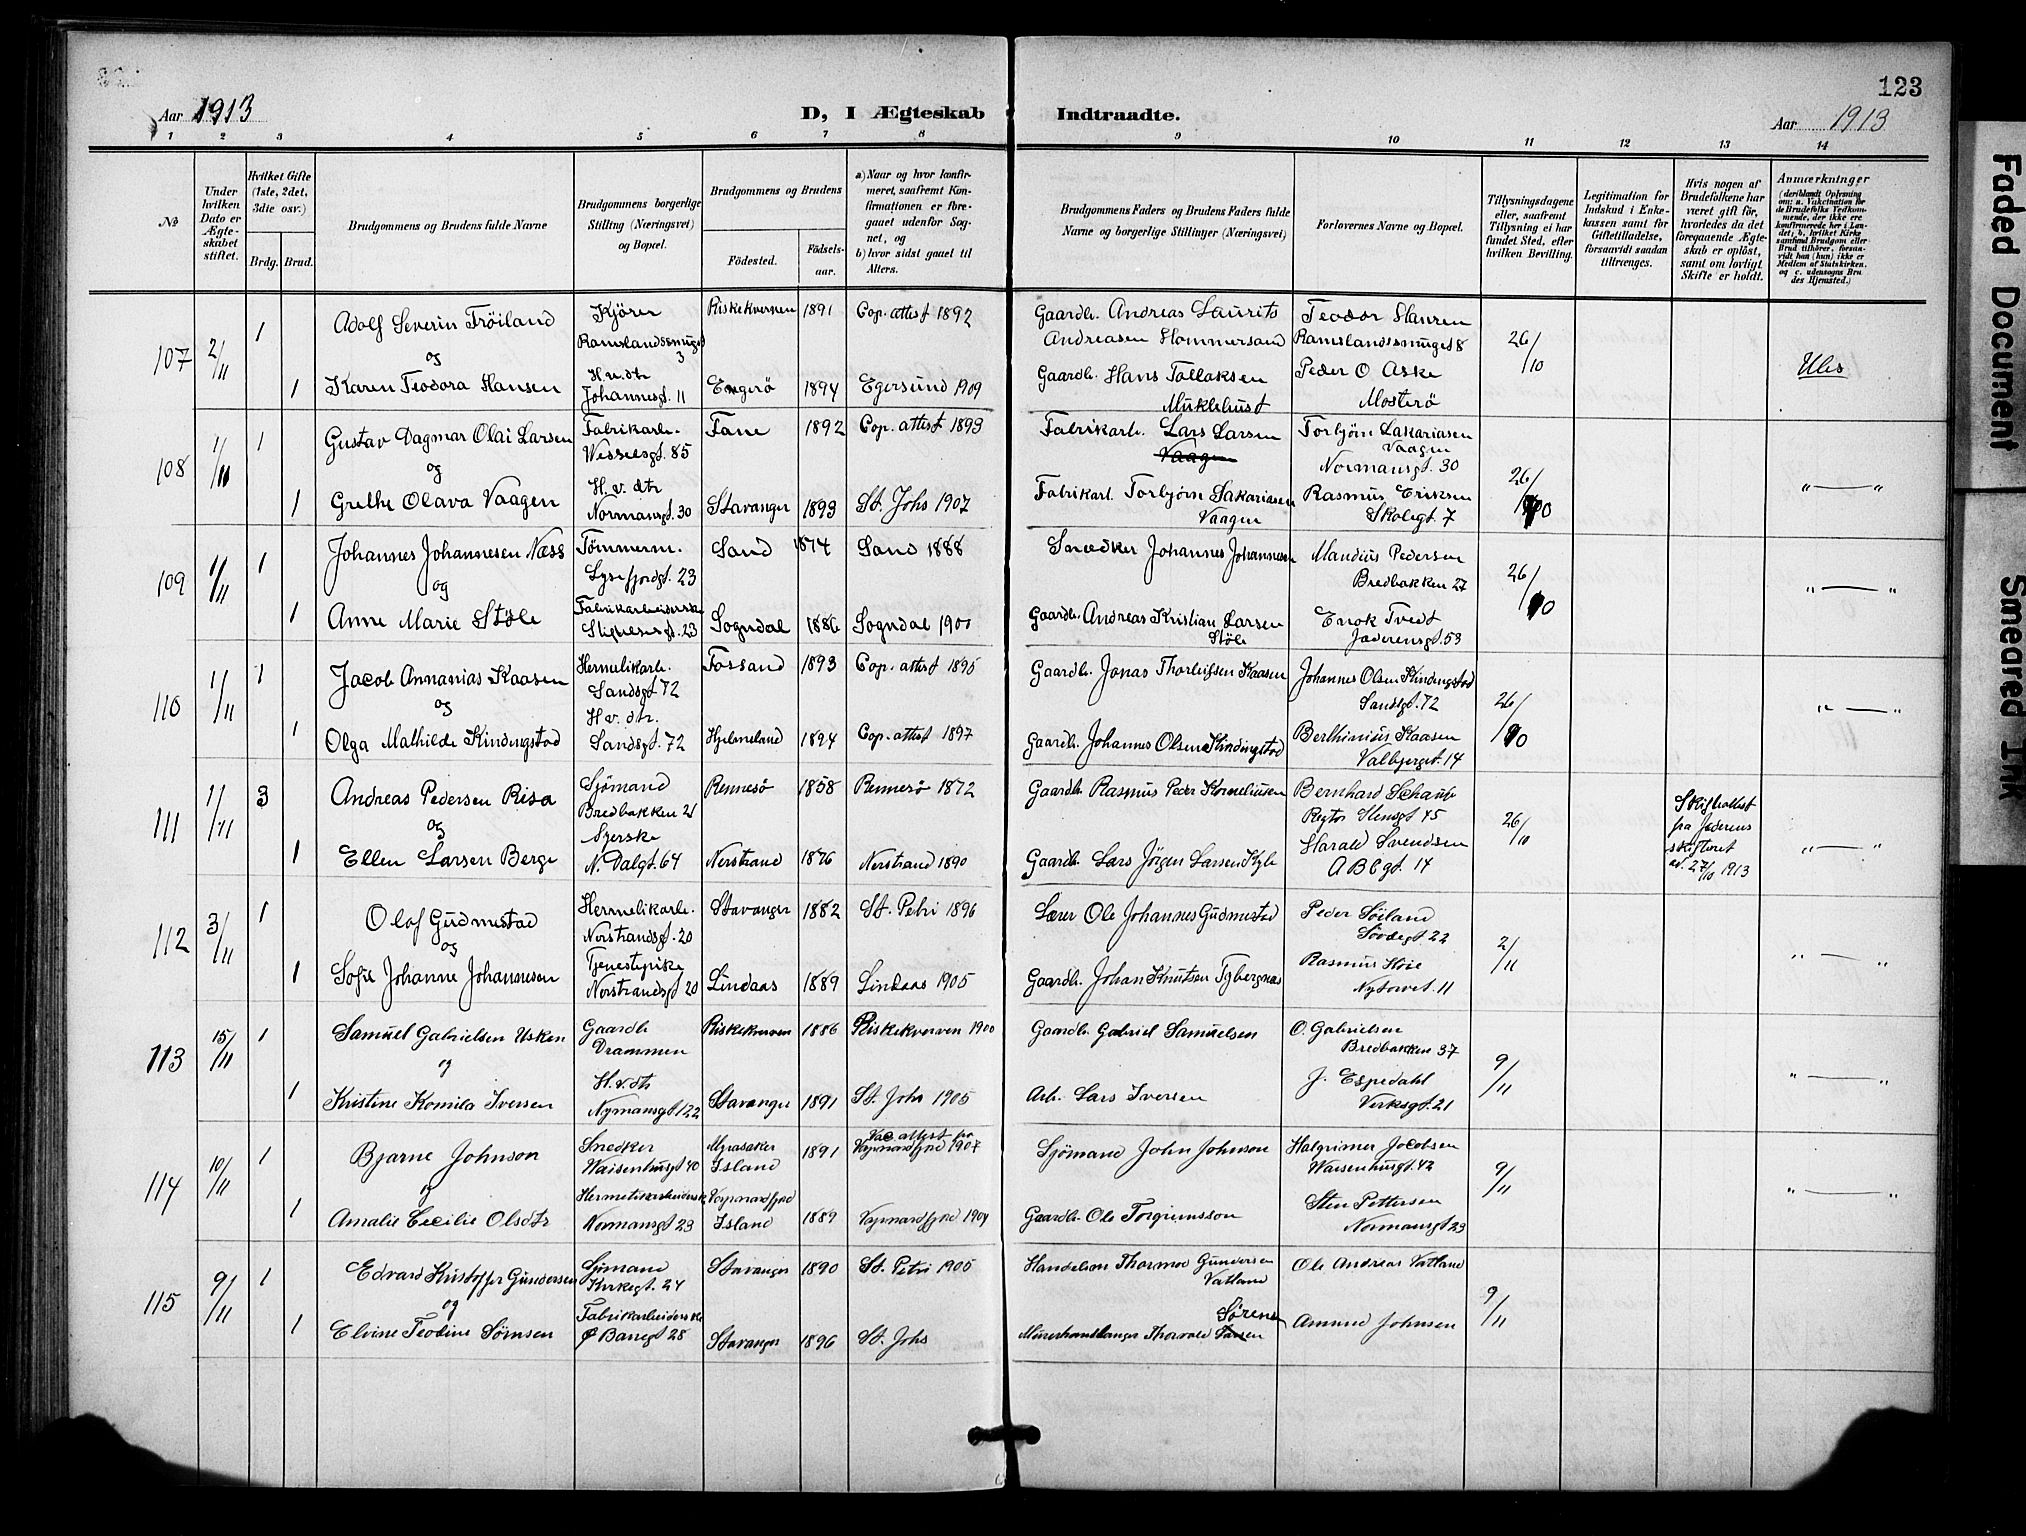 123
Aar 1913
D, I Ægteskab Indtraadte.
Aar 1913
1 2 3 4 5 6 7 8 9 10 11 12 13 14
№
Under hvilken Dato er Ægteskabet stiftet.
Hvilket Gifte (1ste, 2det, 3die osv.)
Brdg. Brud.
Brudgommens og Brudens fulde Navne
Brudgommens borgerlige Stilling (Næringsvei) og Bopæl.
Brudgommens og Brudens
Födested.
Födselsaar.
a) Naar og hvor konfirmeret, saafremt Konfirmationen er foregaaet udenfor Sognet, og
b) hvor sidst gaaet til Alters.
Brudgommens Faders og Brudens Faders fulde Navne og borgerlige Stillinger (Næringsvei)
Forlovernes Navne og Bopæl.
Tillysningsdagene eller, saafremt Tillysning ei har fundet Sted, efter hvilken Bevilling.
Legitimation for Indskud i Enkekassen samt for Giftetilladelse, forsaavidt saadan tiltrænges.
Hvis nogen af Brudefolkene har været gift för, hvorledes da det foregaaende Ægteskab er oplöst, samt om lovligt Skifte er holdt.
Anmærkninger
107 2/11 1 Adolf Severin Tröiland Kjörer Ramslandssmuget 3 Riskekverven 1891 Cop. attest 1892 Gaardb. Andreas Laurits Andreasen Hommersand Teodor Hansen Ramslandssmuget 8 26/10
og
1 Karen Teodora Hansen H.v.dtr Johannesgt. 11 Engerö 1894 Egersund 1909 Gaardb. Hans Tollaksen Muklehust Peder O Aske Mosterö
108 1/11 1 Gustav Dagmar Olai Larsen Fabrikarb. Wesselsgt. 85 Fane 1892 Cop. attest 1893 Fabrikarb. Lars Larsen Vaagen Torbjørn Sakariasen Vaagen Normansgt. 30 26/10 " — "
og
1 Grethe Olava Vaagen H.v.dtr Normansgt. 30 Stavanger 1893 St. Johs 1907 Fabrikarb. Torbjörn Sakariasen Vaagen Rasmus Eriksen Skolegt. 7
109 1/11 1 Johannes Johannesen Næss Tömmerm. Lysefjordgt. 23 Sand 1874 Sand 1888 Snedker Johannes Johannesen Mandius Pedersen Bredbakken 27 26/10 " — "
og
1 Anne Marie Stöle Fabrikarbeiderske Sogndal 1886 Sogndal 1900 Gaardb. Andreas Kristian Larsen Stöle Enok Tvedt Jaderensgt. 53
110 1/11 1 Jacob Annanias Kaasen Hermetikarb. Sandsgt 72 Fossand 1893 Cop. attest 1895 Gaardb. Jonas Thorleifsen Kaasen Johannes Olsen Kindingstad Sandsgt. 72 26/10 " — "
og
1 Olga Mathilde Kindingstad H.v.dtr. Sandsgt. 72 Hjelmeland 1894 Cop. attest 1897 Gaardb. Johannes Olsen Kindingstad Berthinius Kaasen Valbjergt. 14
111 1/11 3 Andreas Pedersen Risa Sjömand Bredbakken 21 Rennesö 1858 Rennesö 1872 Gaardb. Rasmus Peder Korneliusen Bernhard Schanke 26/10 1913 " — "
og
1 Ellen Larsen Berge Syerske N. Dalgt. 64 Nerstrand 1876 Nerstrand 1890 Gaardb. Lars Jörgen Larsen Harald Svendsen A B C gt. 14
112 3/11 1 Olaf Gudmestad Hermetikarb. Nerstrandsgt. 20 Stavanger 1882 St. Petri 1896 Lærer Ole Johannes Gudmestad Peder Söiland Lövdegt 22 2/11 " — "
og
1 Sofie Johanne Johannesen Tjenestepike Nerstrandsgt 20 Lindaas 1889 Lindaas 1905 Gaardb. Johan Knutsen Rasmus Höie Nytorvet. 11
113 15/11 1 Samuel Gabrielsen Usken Gaardb Drammen Riskekverven 1886 Riskekverven 1900 Gaardb. Gabriel Samuelsen O. Gabrielsen Bredbakken 37 9/11 " — "
og
1 Kristine Komila Iversen H.v.dtr Nymansgt 122 Stavanger 1891 St. Johs 1905 Arb. Lars Iversen J. Espedahl Verksgt. 21
114 10/11 1 Bjarne Johnson Snedker Waisenhusgt 40 Myrasaker Island 1891 Vac. attest fra Vapnardfjord 1907 Sjömand John Johnson Halgrimer Jocobsen Waisenhusgt. 42 9/11 " — "
og
1 Amalie Cecilie Olsdtr Hermetikarbeiderske Normansgt 23 Vapnardfjord Island 1889 Vapnardfjord 1904 Gaardb. Ole Torgrimsson Sten Pettersen Normansgt 23
115 9/11 1 Edvard Kristoffer Gundersen Sjömand Kirkegt. 24 Stavanger 1890 St. Petri 1905 Thormod Gundersen Vatland Ole Andreas Vatland 9/11
og
1 Elvine Teodine Sömsen Fabrikarbeiderske Stavanger 1896 St. Johs Thorvald Sörensen Amund Johnsen
Faded Document
Smeared Ink